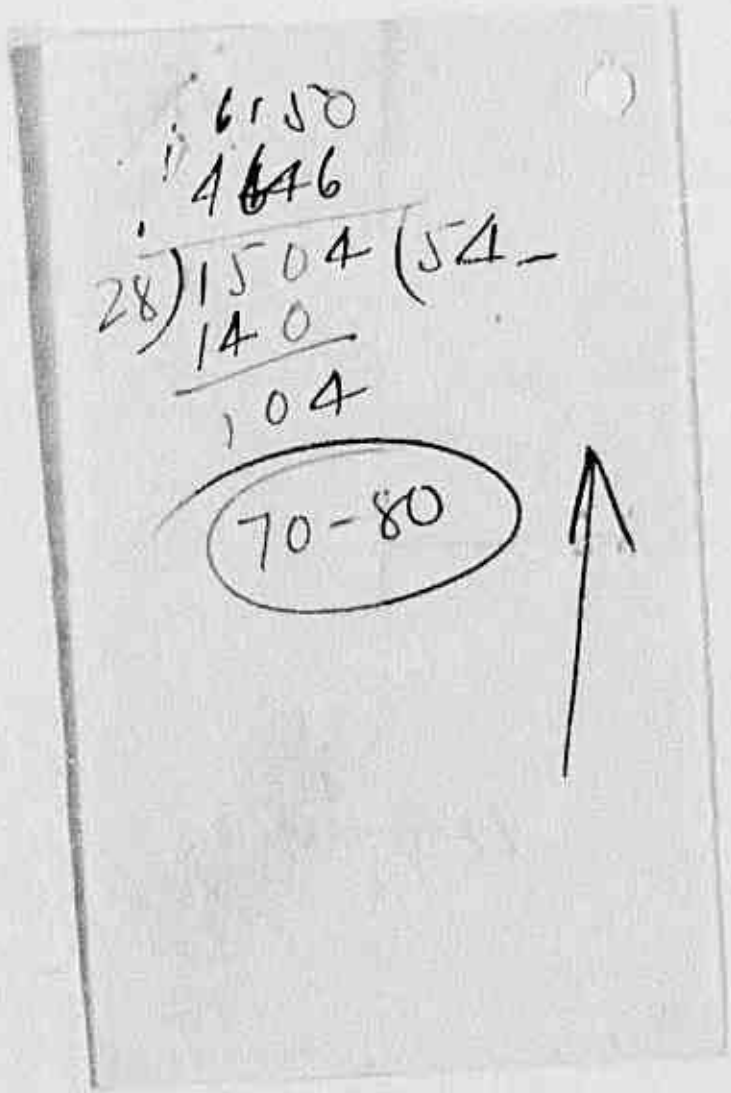 6150
4646
28)1504(54-
140
104
70-80